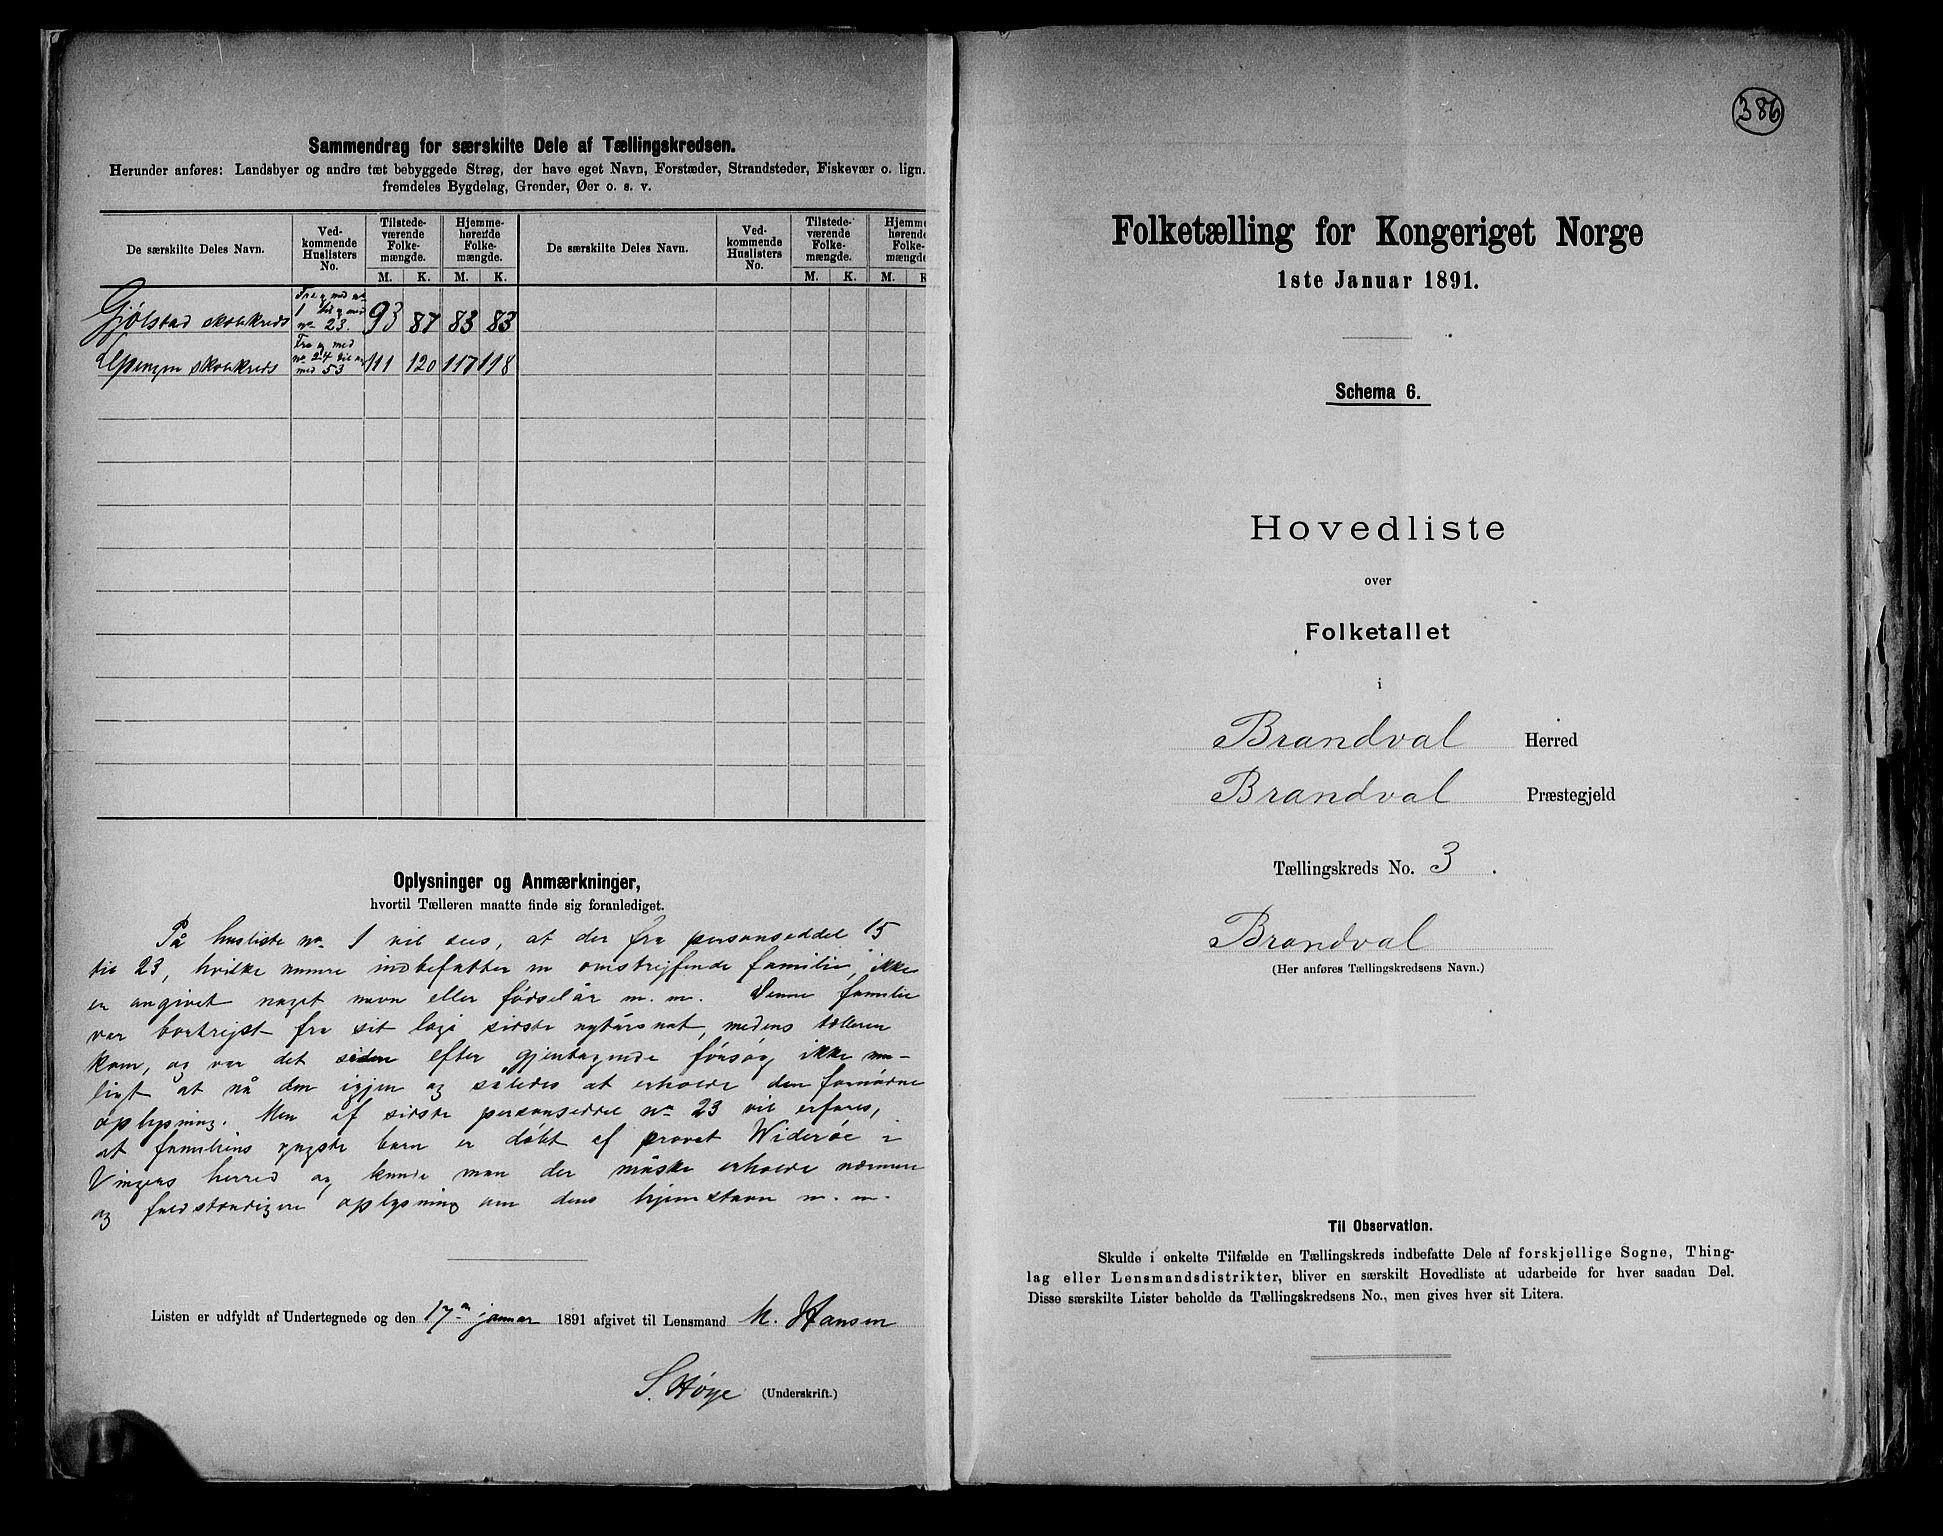 Sammendrag for særskilte Dele af Tællingskredsen.
Herunder anføres: Landsbyer og andre tæt bebyggede Strøg, der have eget Navn, Forstæder, Strandsteder, Fiskevær o. lign.
fremdeles Bygdelag, Grender, Øer o. s. v.
De særskilte Deles Navn. Ved-kommende Huslisters No. Tilstede-værende Folke-mængde. Hjemme-hørende Folke-mængde. De særskilte Deles Navn. Ved-kommende Huslisters No. Tilstede-værende Folke-mængde. Hjemme-hørende Folke-mængde.
M. K. M. K. M. K. M. K.
Gjølstad skolekreds Fra og med no 1 til og med no 23. 93 87 83 83
skolekreds Fra og med no 24 til og med 53 111 120 117 118
Oplysninger og Anmærkninger,
hvortil Tælleren maatte finde sig foranlediget.
På husliste no 1 vil sees, at der fra personseddel 15
til 23, hvilke numre indbefatter en omstreifende familie, ikke
er angivet noget navn eller fødselår m. m. Denne familie
var bortreist fra sit logi sidste nytårsnat, medens tælleren
kom, og var det siden efter gjentagende forsøg ikke mu-
ligt at nå den igjen og således at erholde den fornødne
oplysning. Men af sidste personseddel no 23 vil erfares,
at familiens yngste barn er døbt af provst Widerøe i
Vingers herred og kunde man der måske erholde nærmere
og fuldstændigere oplysning om dens hjemstavn m. m.
Listen er udfyldt af Undertegnede og den 17de januar 1891 afgivet til Lensmand M. Hansen
S. Høye (Underskrift.)
386
Folketælling for Kongeriget Norge
1ste Januar 1891.
Schema 6.
Hovedliste
over
Folketallet
i
Brandval Herred
Brandval Præstegjeld
Tællingskreds No. 3.
Brandval
(Her anføres Tællingskredsens Navn.)
Til Observation.
Skulde i enkelte Tilfælde en Tællingskreds indbefatte Dele af forskjellige Sogne, Thing-
lag eller Lensmandsdistrikter, bliver en særskilt Hovedliste at udarbeide for hver saadan Del.
Disse særskilte Lister beholde da Tællingskredsens No., men gives hver sit Litera.